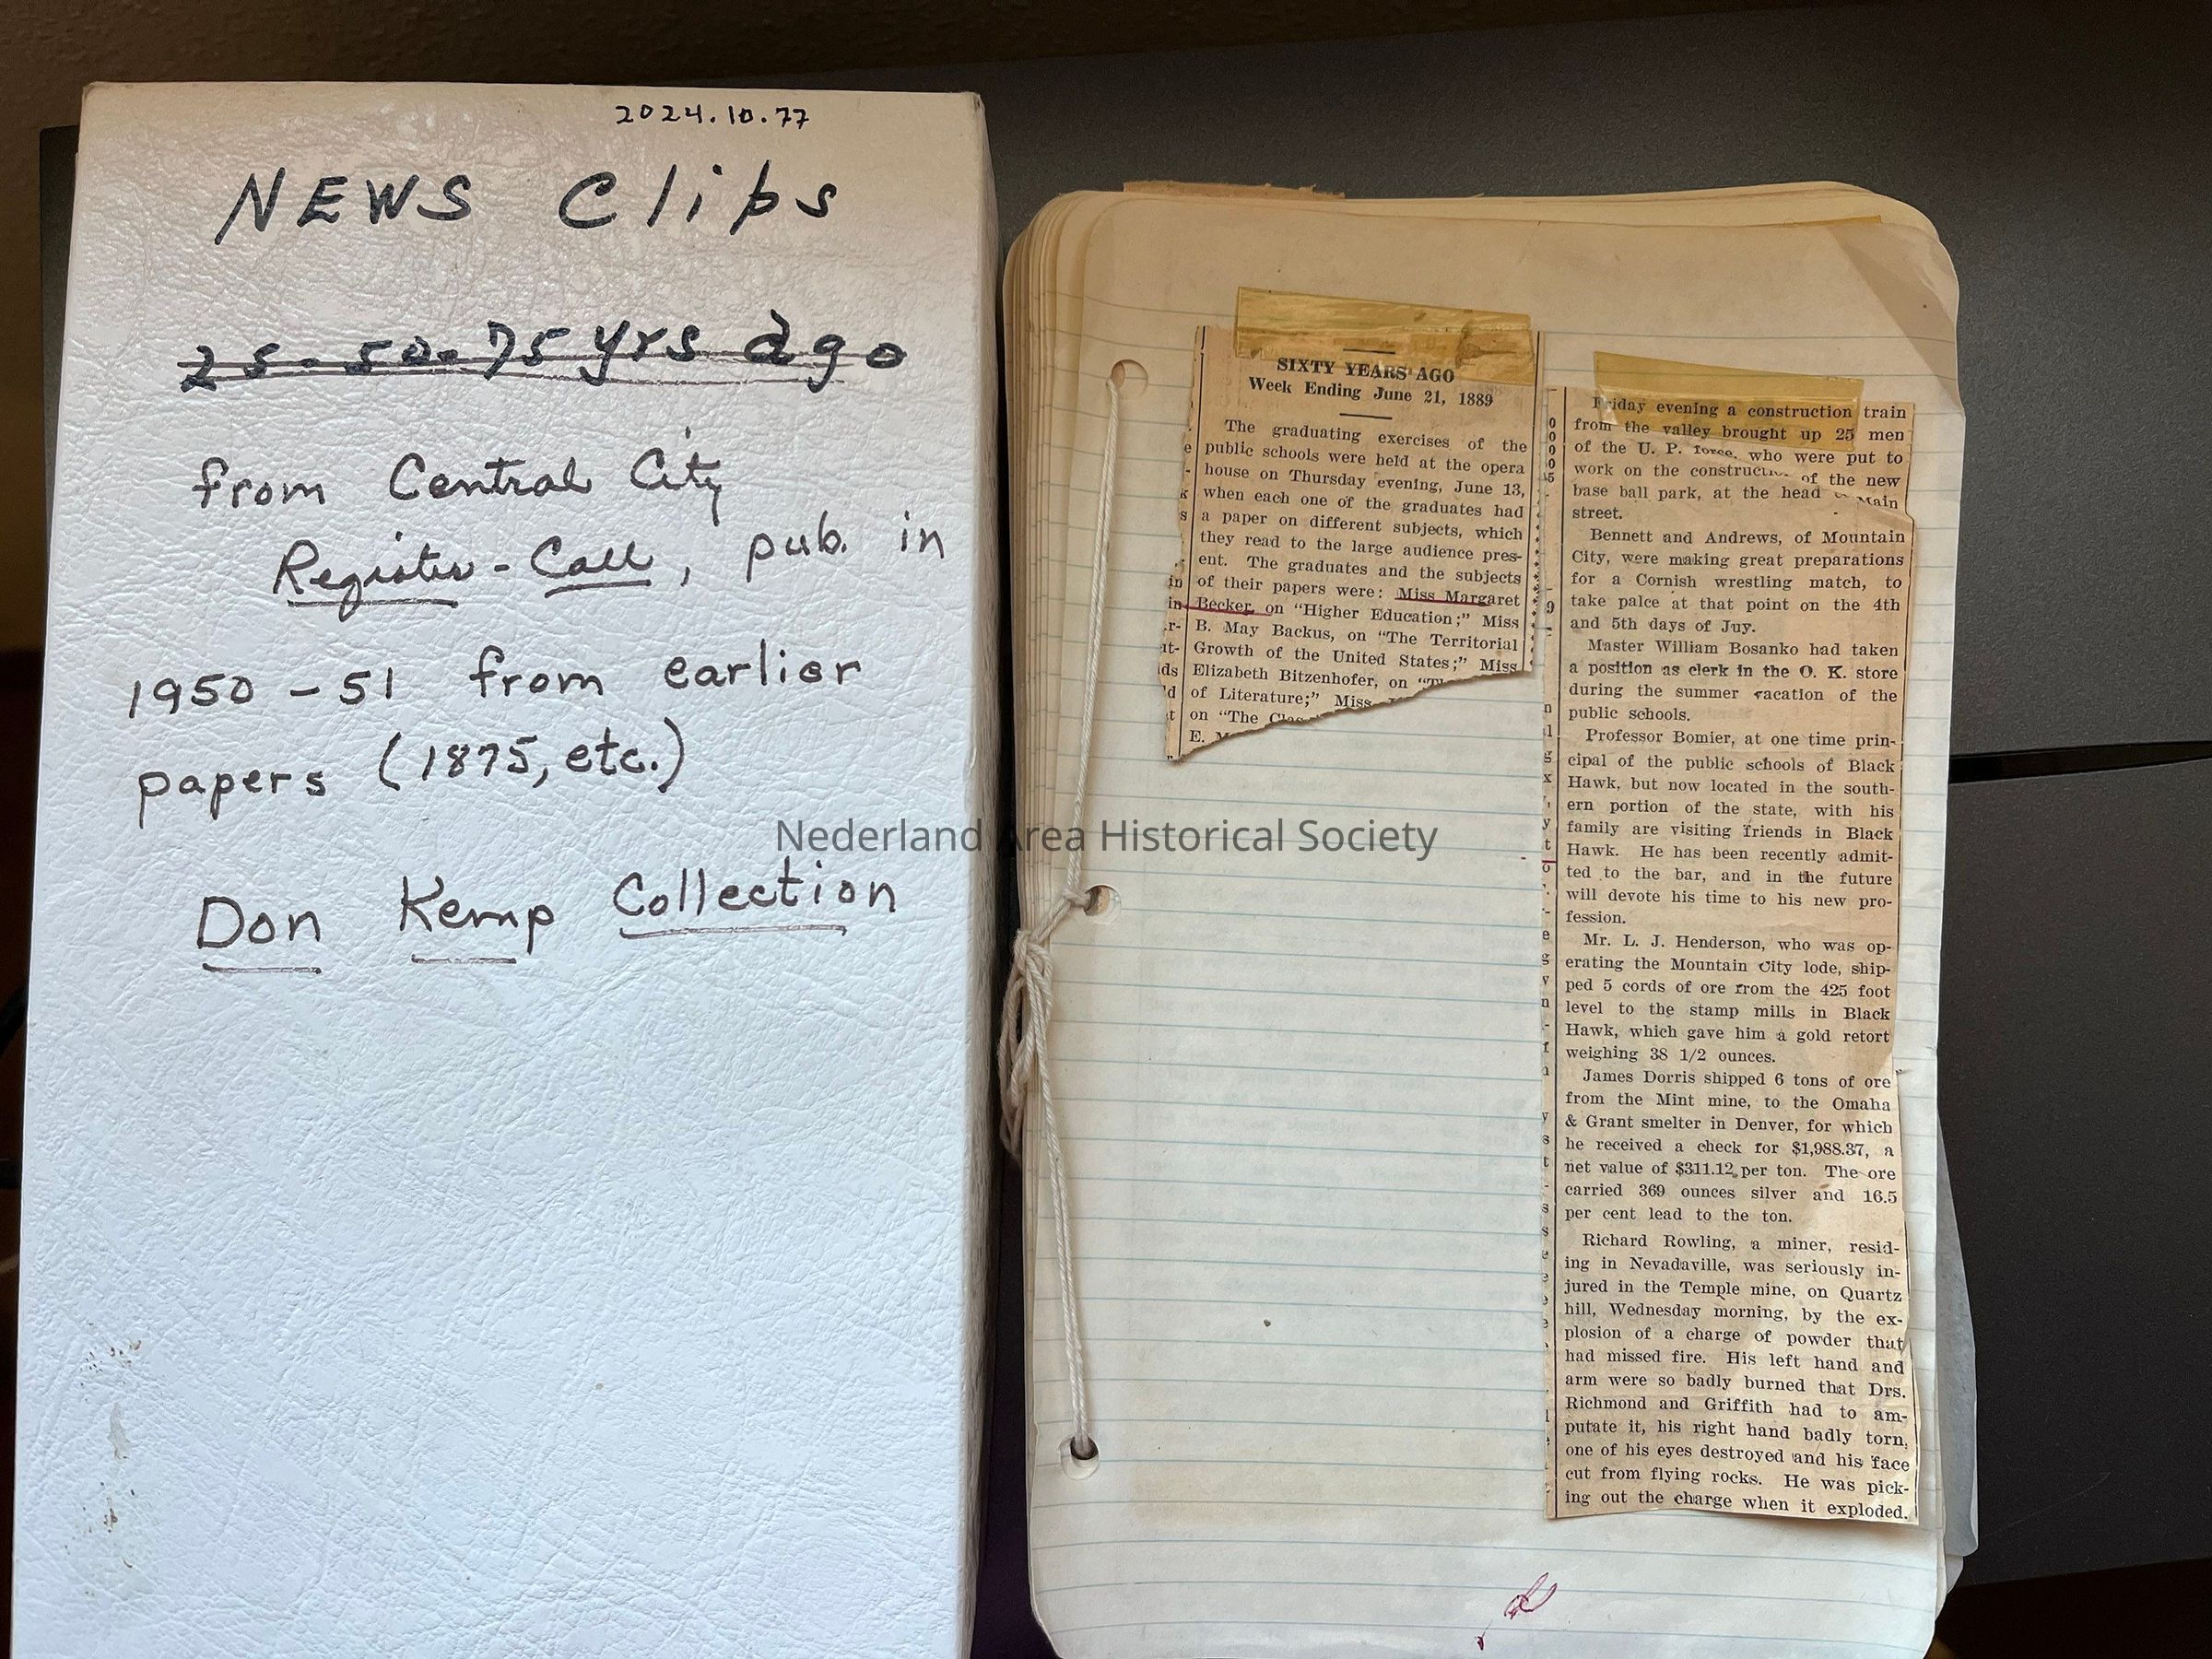 2024.10.77
NEWS Clips
25-50-75 yrs ago
from Central City
Register-Call, pub. in
1950-51 from earlier
papers (1875, etc.)
Don Kemp Collection
SIXTY YEARS AGO
Week Ending June 21, 1889
The graduating exercises of the
public schools were held at the opera
house on Thursday evening, June 13,
when each one of the graduates had
a paper on different subjects, which
they read to the large audience pres-
ent. The graduates and the subjects
of their papers were: Miss Margaret
Becker, on "Higher Education;" Miss
B. May Backus, on "The Territorial
Growth of the United States;" Miss
Elizabeth Bitzenhofer, on
of Literature;" Miss
on "The
E.
Friday evening a construction train
from the valley brought up 25 men
of the U. P. force, who were put to
work on the of the new
base ball park, at the head Main
street.
Bennett and Andrews, of Mountain
City, were making great preparations
for a Cornish wrestling match, to
take palce at that point on the 4th
and 5th days of Juy.
Master William Bosanko had taken
a position as clerk in the O. K. store
during the summer vacation of the
public schools.
Professor Bomier, at one time prin-
cipal of the public schools of Black
Hawk, but now located in the south-
ern portion of the state, with his
family are visiting friends in Black
Hawk. He has been recently admit-
ted to the bar, and in the future
will devote his time to his new pro-
fession.
Mr. L. J. Henderson, who was op-
erating the Mountain City lode, ship-
ped 5 cords of ore from the 425 foot
level to the stamp mills in Black
Hawk, which gave him a gold retort
weighing 38 1/2 ounces.
James Dorris shipped 6 tons of ore
from the Mint mine, to the Omaha
& Grant smelter in Denver, for which
he received a check for $1,988.37, a
net value of $311.12 per ton. The ore
carried 369 ounces silver and 16.5
per cent lead to the ton.
Richard Rowling, a miner, resid-
ing in Nevadaville, was seriously in-
jured in the Temple mine, on Quartz
hill, Wednesday morning, by the ex-
plosion of a charge of powder that
had missed fire. His left hand and
arm were so badly burned that Drs.
Richmond and Griffith had to am-
putate it, his right hand badly torn,
one of his eyes destroyed and his face
cut from flying rocks. He was pick-
ing out the charge when it exploded.
Nederland Area Historical Society